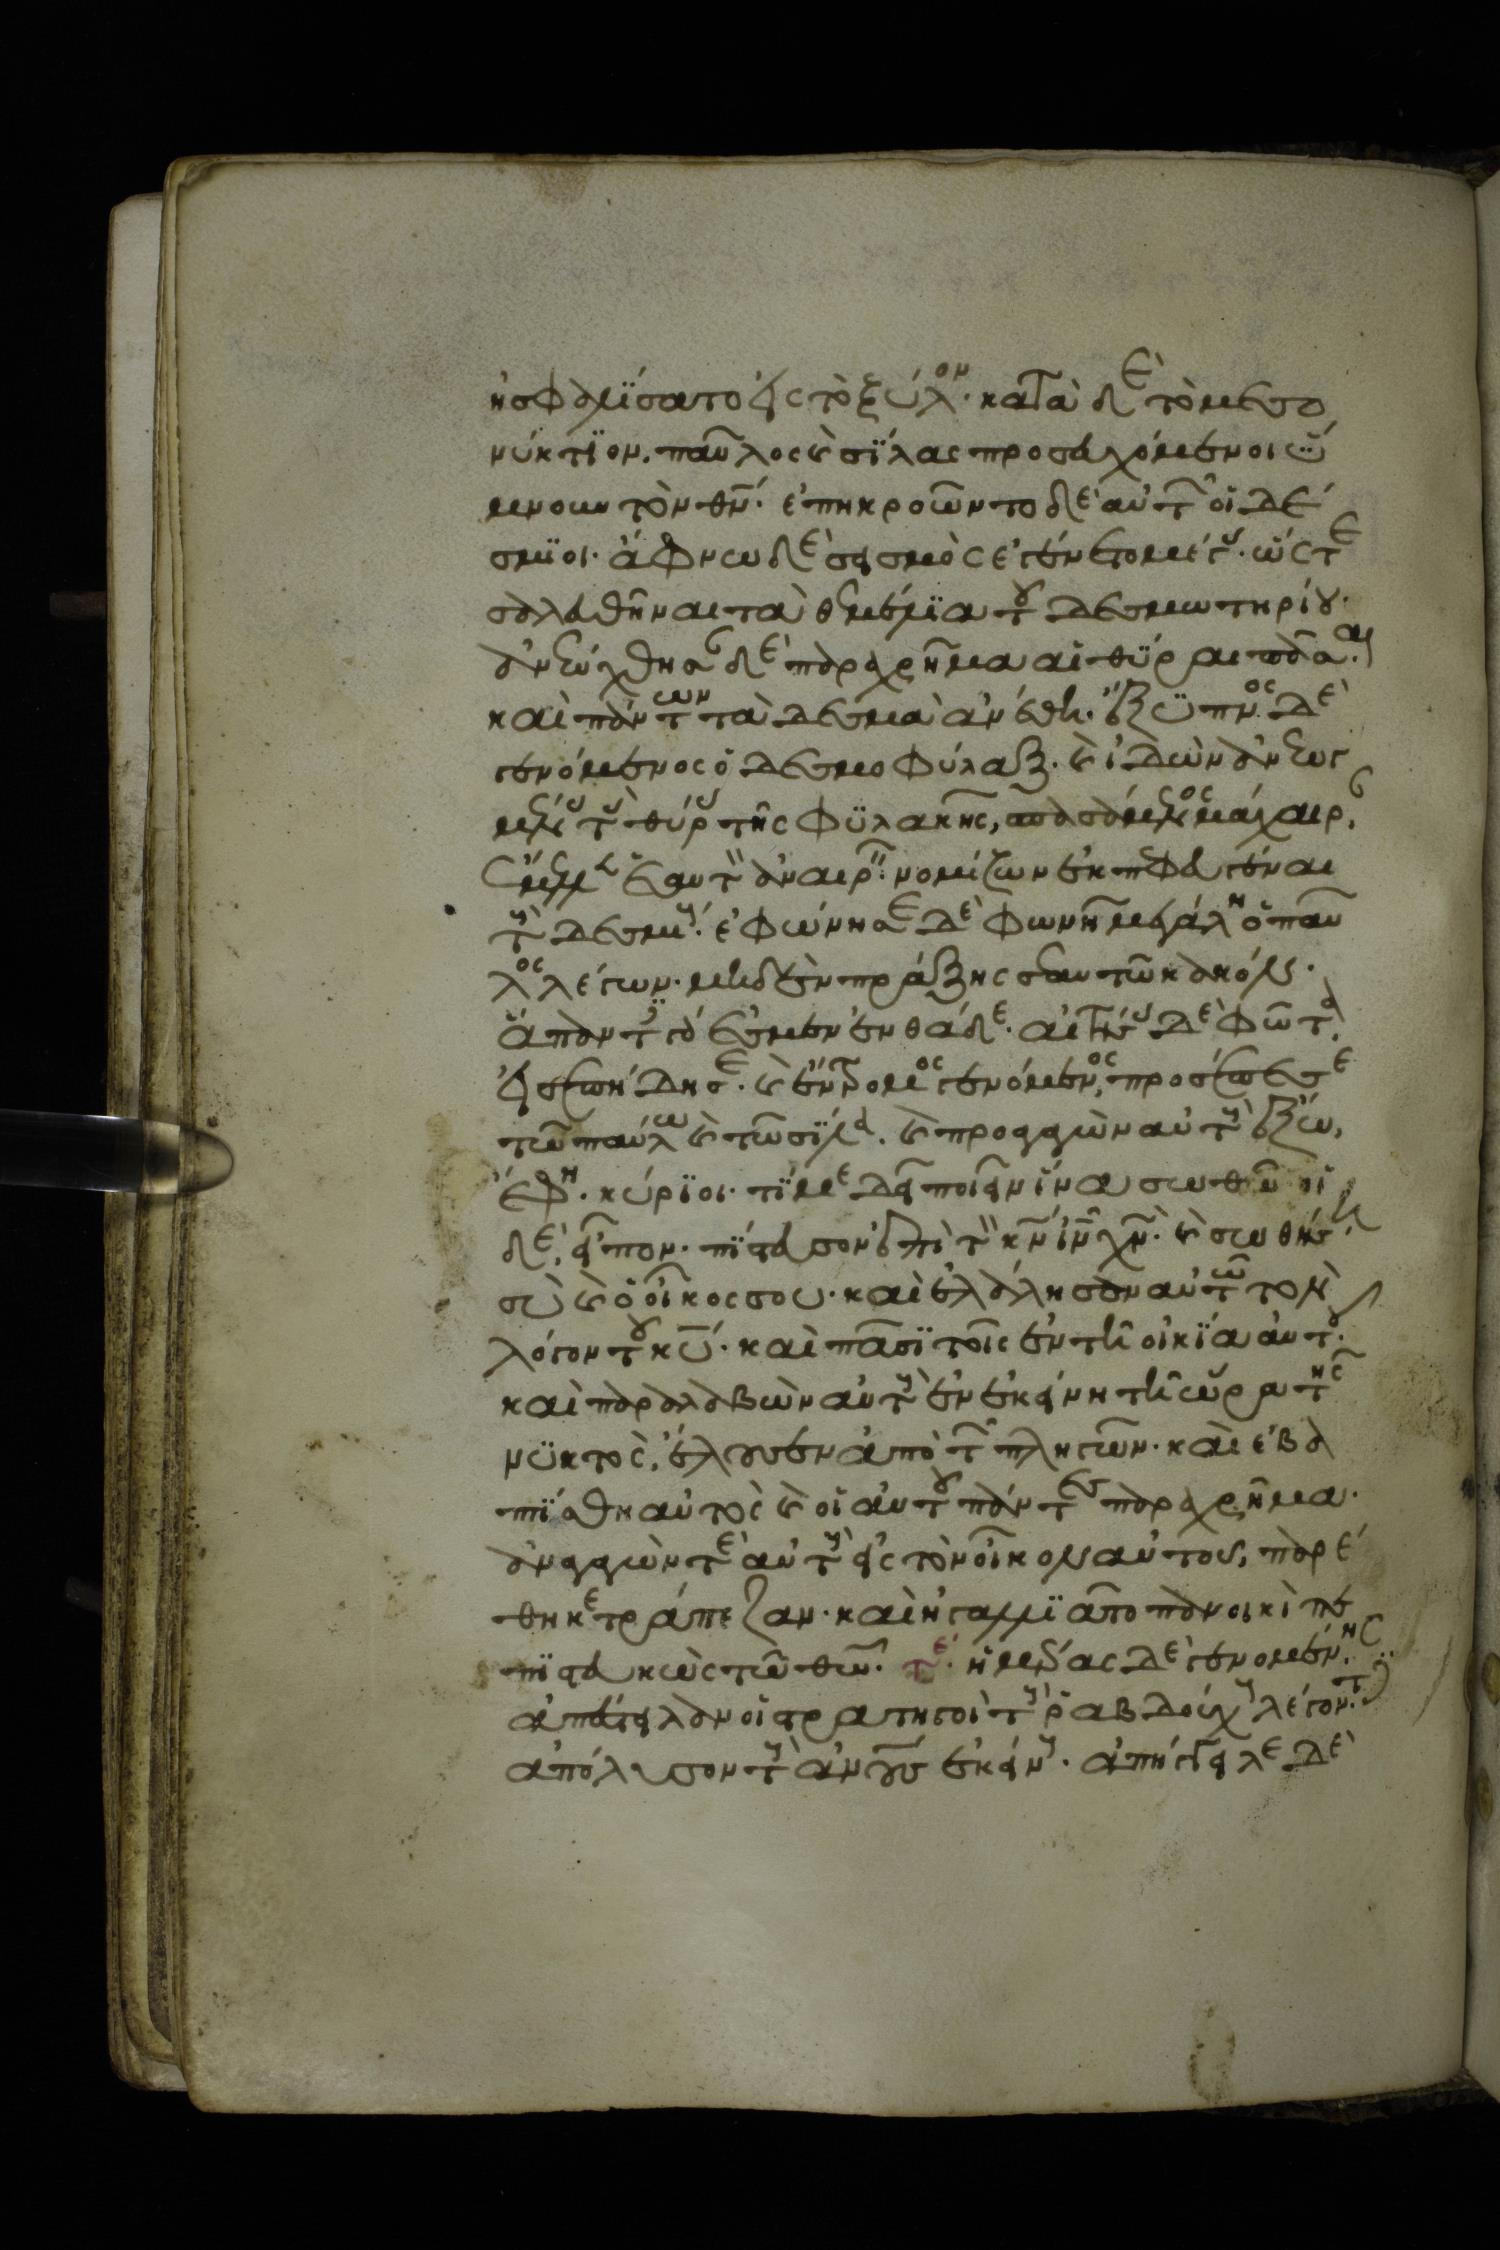 ἠσφαλίσατο εἰς τὸ ξύλον· κατὰ δὲ τὸ μεσο
νύκτιον, παῦλος καὶ σίλας προσευχόμενοι ὕ
μνουν τὸν θν· ἐπηκροῶντο δὲ αὐτῶν οἱ δέ
σμιοι· ἄφνω δὲ σεισμὸς ἐγένετο μέγας· ὥστε
σαλευθῆναι τὰ θεμέλια τοῦ δεσμωτηρίου·
ἀνεώχθησαν δὲ παραχρῆμα αἱ θύραι πᾶσαι·
καὶ πάντων τὰ δεσμὰ ἀνέθη· ἔξυπνος δὲ
γενόμενος ὁ δεσμοφύλαξ· καὶ ἰδὼν ἀνεωγ
μένας τὰς θύρας τῆς φυλακῆς, σπασάμενος μάχαιραν,
ἔμελλεν ἑαυτὸν ἀναιρεῖν· νομίζων ἐκπεφευγέναι
τοὺς δεσμίους· ἐφώνησε δὲ φωνῇ μεγάλῃ ὁ παῦ
λος λέγων· μηδὲν πράξῃς σεαυτῷ κακόν·
ἅπαντες γάρ ἐσμεν ἐνθάδε· αἰτήσας δὲ φῶτα,
εἰσεπήδησε· καὶ ἔντρομος γενόμενος, προσέπεσε
τῷ παύλῳ καὶ τῷ σίλᾳ· καὶ προαγαγὼν αὐτοὺς ἔξω,
ἔφη· κύριοι· τί με δεῖ ποιεῖν ἵνα σωθῶ· οἱ
δὲ, εἶπον· πίστευσον ἐπὶ τὸν κν ιν χν· καὶ σωθήσῃ
σὺ καὶ ὁ οἶκος σου· καὶ ἐλάλησαν αὐτῷ τὸν
λόγον τοῦ κυ· καὶ πᾶσι τοῖς ἐν τῇ οἰκίᾳ αὐτοῦ·
καὶ παραλαβὼν αὐτοὺς ἐν ἐκείνῃ τῇ ὥρᾳ τῆς
νυκτὸς, ἔλουσεν ἀπὸ τῶν πληγῶν· καὶ ἐβα
πτίσθη αὐτὸς καὶ οἱ αὐτοῦ πάντες παραχρῆμα·
ἀναγαγὼν τε αὐτοὺς εἰς τὸν οἶκον αὐτοῦ, παρέ
θηκε τράπεζαν· καὶ ἠγαλλιᾶτο πανοικὶ πε
πιστευκὼς τῷ θω· τε· ἡμέρας δὲ γενομένης,
ἀπέστειλαν οἱ στρατηγοὶ τοὺς ῥαβδούχους λέγοντες·
ἀπόλυσον τοὺς ἀνους ἐκείνους· ἀπήγγειλε δὲ